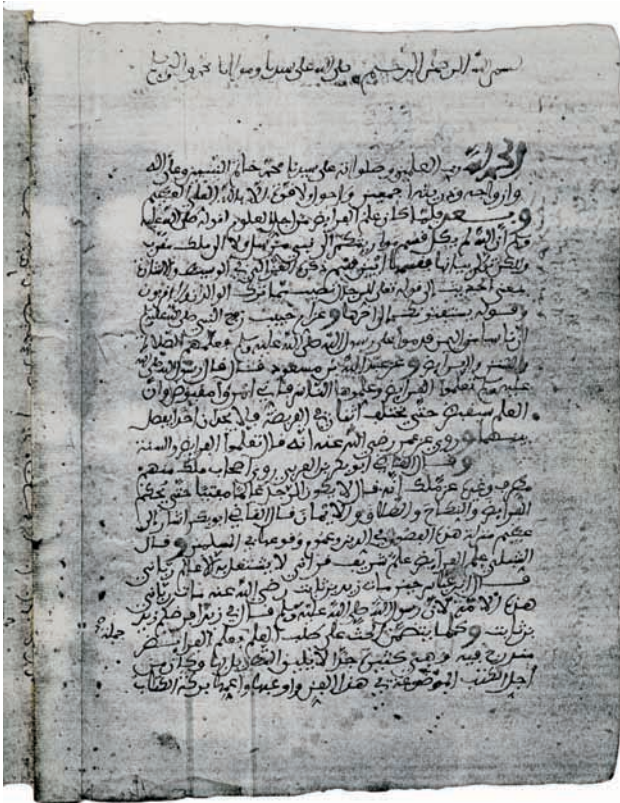 بسم الله الرحمن الرحيم صلى الله على سيدنا ومولانا محمد وآله
الحمد لله رب العلمين وصلوات الله على سيدنا محمد خاتم النبيين وعلى اله
وازواجه وذريته اجمعين ولا حول ولا قوة الا بالله العلي العظيم
وبعد فلما كان علم الفرايض من اجل العلوم لقوله صلى الله عليه
وسلم ان الله لم يكل قسم مواريثكم الى نبي مرسل ولا الى ملك مقرب
ولكن تولى بيانها فقسمها
بمعنى احديث الى قوله تعلى للرجال نصيب مما ترك الوالدان والاقربون
وقوله يستفتونك زوج النبي صلى الله عليه وسلم
ان ناسا من اليمن قدموا على رسول الله صلى الله عليه وسلم فعلمهم الصلاة
والسنن والفرايض وعن عبد الله بن مسعود قال قال رسول الله صلى الله
عليه وسلم تعلموا الفرايض وعلموها الناس فاني امرؤ مقبوض وان
العلم سيقبض حتى يختلف اثنان في الفريضة فلا يجدان احدا يفصل
بينهما وروي عن عمر رضي الله عنه انه قال تعلموا الفرايض والسنة
وقال القاضي ابو بكر بن العربي روى اصحاب ملك منهم
مطرف وغيره عن ملك انه قال لا يكون الرجل عالما مفتيا حتى يحكم
الفرايض والنكاح والطلاق والايمان قال القاضي ابو بكر اشار الى
عظم منزلة هذه الفصول في الدين وعموم وقوعها في المسلمين وقال
علم الفرايض علم شريف لا يشتغل به الا عالم رباني
قال ابن عباس حين مات زيد بن ثابت رضي الله عنه مات رباني
هذه الامة لان رسول الله صلى الله عليه وسلم قال في زيد افرضكم زيد
بن ثابت وكلما يتضمن الحث على طلب العلم فعلم الفرايض
مندرج فيه وهي كثيرة جدا لا يليق التطويل بها وكان من
اجل الكتب الموضوعة في هذا الفن واوعبها واعمها بركة الكتاب